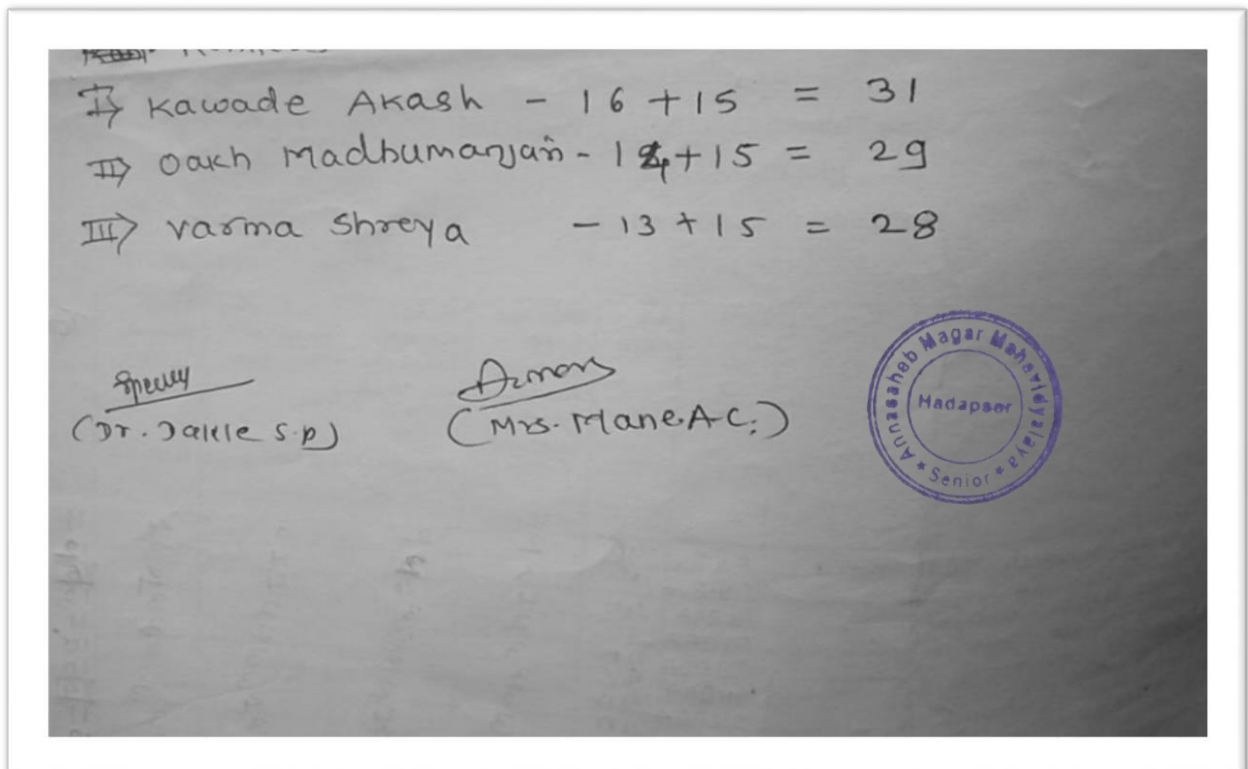 I) Kawade Akash - 16 + 15 = 31
II) Oakh Madhumanjari - 14 + 15 = 29
III) Varma Shreya - 13 + 15 = 28
(Dr. S.P)
(Mrs. Mane A.C.)
Annasaheb Magar Mahavidyalaya
Hadapsar
★ Senior ★